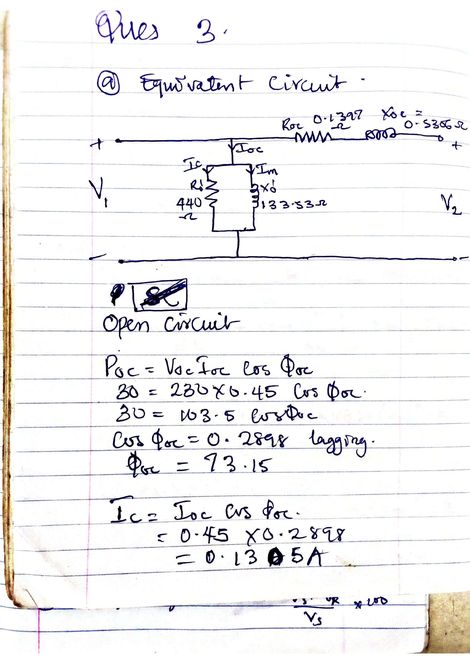 Ques 3.
(a) Equivalent Circuit.
Roc 0.1397 Ω Xoc = 0.5306 Ω
+ Ioc +
Ic Im
V₁ Rò 440 Ω Xò 133.53Ω V₂
- -
Open Circuit
Poc = Voc Ioc Cos Φoc
30 = 230 x 0.45 Cos Φoc.
30 = 103.5 cosΦoc
Cos Φoc = 0.2898 lagging.
Φoc = 73.15
Ic = Ioc Cos Φoc.
= 0.45 x 0.2898
= 0.1305A
Vs x 100